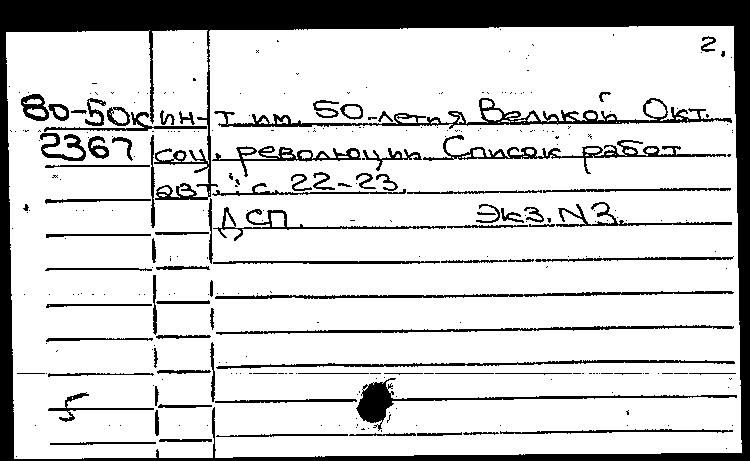 2.
80-50к ин-т им. 50-летия Великой Окт.
2367 соц. революции. Список работ
авт.: с. 22-23.
ДСП. Экз. N3.
5